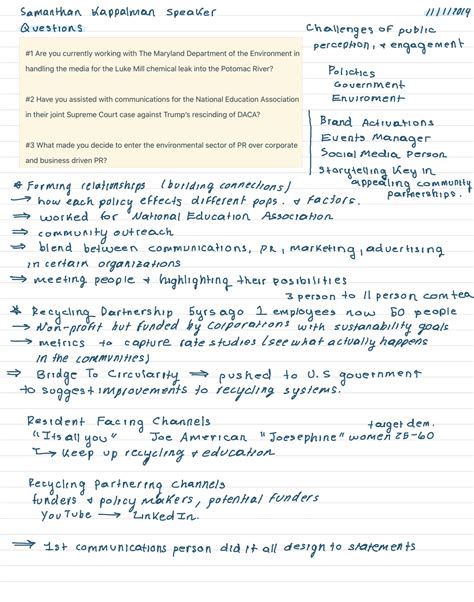 Samanthan Kappalman Speaker
11/11/2019
Questions
Challenges of public
perception, & engagement
#1 Are you currently working with The Maryland Department of the Environment in
handling the media for the Luke Mill chemical leak into the Potomac River?
#2 Have you assisted with communications for the National Education Association
in their joint Supreme Court case against Trump's rescinding of DACA?
#3 What made you decide to enter the environmental sector of PR over corporate
and business driven PR?
Politics
Government
Enviroment
Brand Activations
Events Manager
Social Media Person
Storytelling key in
appealing community
partnerships.
* Forming relationships (building connections)
→ how each policy effects different pops. & factors.
⇒ worked for National Education Association
⇒ community outreach
⇒ blend between communications, PR, marketing, advertising
in certain organizations
⇒ meeting people & highlighting their posibilities
3 person to 11 person com tea
* Recycling Partnership 5yrs ago 1 employees now 50 people
→ Non-profit but funded by corporations with sustainability goals
→ metrics to capture rate studies (see what actually happens
in the communities)
⇒ Bridge To Circularity ⇒ pushed to U.S government
to suggest improvements to recycling systems.
Resident Facing Channels
target dem.
"Its all you" Joe American "Joesephine" women 25-60
↳ Keep up recycling & education
Recycling Partnering Channels
funders & policy makers, potential funders
YouTube → LinkedIn.
⇒ 1st communications person did it all design to statements